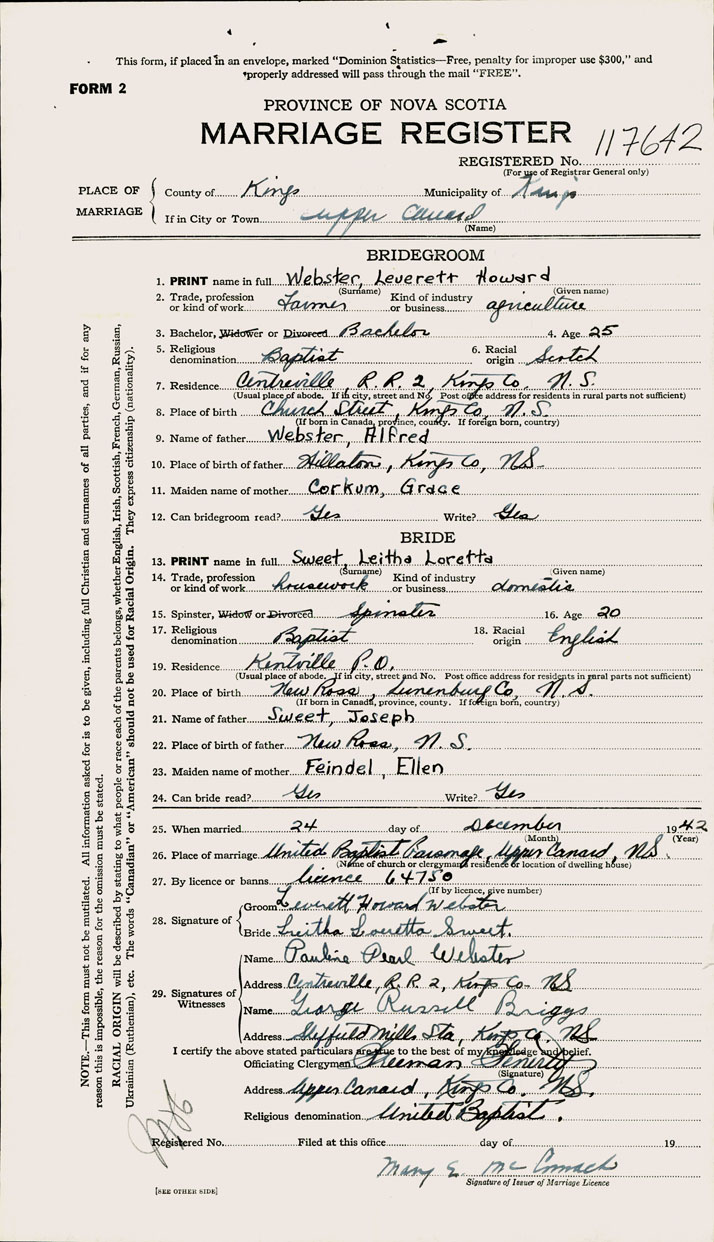 This form, if placed in an envelope, marked "Dominion Statistics—Free, penalty for improper use $300," and
properly addressed will pass through the mail "FREE".
FORM 2
PROVINCE OF NOVA SCOTIA
MARRIAGE REGISTER
REGISTERED No. 117642
(For use of Registrar General only)
PLACE OF MARRIAGE
County of Kings Municipality of Kings
If in City or Town Upper Canard
(Name)
BRIDEGROOM
1. PRINT name in full Webster, Leverett Howard
(Surname) (Given name)
2. Trade, profession or kind of work Farmer Kind of industry or business agriculture
3. Bachelor, Widower or Divorced Bachelor 4. Age 25
5. Religious denomination Baptist 6. Racial origin Scotch
7. Residence Centreville, R.R. 2, Kings Co. N.S.
(Usual place of abode. If in city, street and No. Post office address for residents in rural parts not sufficient)
8. Place of birth Church Street, Kings Co, N.S.
(If born in Canada, province, county. If foreign born, country)
9. Name of father Webster, Alfred
10. Place of birth of father Hillaton, Kings Co, NS
11. Maiden name of mother Corkum, Grace
12. Can bridegroom read? Yes Write? Yes
BRIDE
13. PRINT name in full Sweet, Leitha Loretta
(Surname) (Given name)
14. Trade, profession or kind of work housework Kind of industry or business domestic
15. Spinster, Widow or Divorced Spinster 16. Age 20
17. Religious denomination Baptist 18. Racial origin English
19. Residence Kentville P.O.
(Usual place of abode. If in city, street and No. Post office address for residents in rural parts not sufficient)
20. Place of birth New Ross, Lunenburg Co, N.S.
(If born in Canada, province, county. If foreign born, country)
21. Name of father Sweet, Joseph
22. Place of birth of father New Ross, N.S.
23. Maiden name of mother Feindel, Ellen
24. Can bride read? Yes Write? Yes
25. When married 24 day of December 1942
(Month) (Year)
26. Place of marriage United Baptist Parsonage, Upper Canard, NS.
(Name of church or clergyman's residence or location of dwelling house)
27. By licence or banns licence 64750
(If by licence, give number)
28. Signature of
Groom Leverett Howard Webster
Bride Leitha Loretta Sweet.
29. Signatures of Witnesses
Name Pauline Pearl Webster
Address Centreville, R.R. 2, Kings Co- NS
Name George Russell Briggs
Address Sheffield Mills Sta, Kings Co, NS
I certify the above stated particulars are true to the best of my knowledge and belief.
Officiating Clergyman Freeman Fenerty
(Signature)
Address Upper Canard, Kings Co. NS.
Religious denomination United Baptist.
Registered No. Filed at this office day of 19
Mary E. McCormack
Signature of Issuer of Marriage Licence
[SEE OTHER SIDE]
NOTE.—This form must not be mutilated. All information asked for is to be given, including full Christian and surnames of all parties, and if for any
reason this is impossible, the reason for the omission must be stated.
RACIAL ORIGIN will be described by stating to what people or race each of the parents belongs, whether English, Irish, Scottish, French, German, Russian,
Ukrainian (Ruthenian), etc. The words "Canadian" or "American" should not be used for Racial Origin. They express citizenship (nationality).